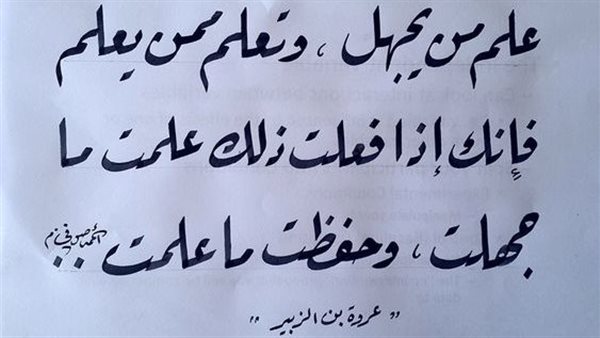 علم من يجهل ، وتعلم ممن يعلم
فإنك إذا فعلت ذلك علمت ما
جهلت ، وحفظت ما علمت ..
" عروة بن الزبير "